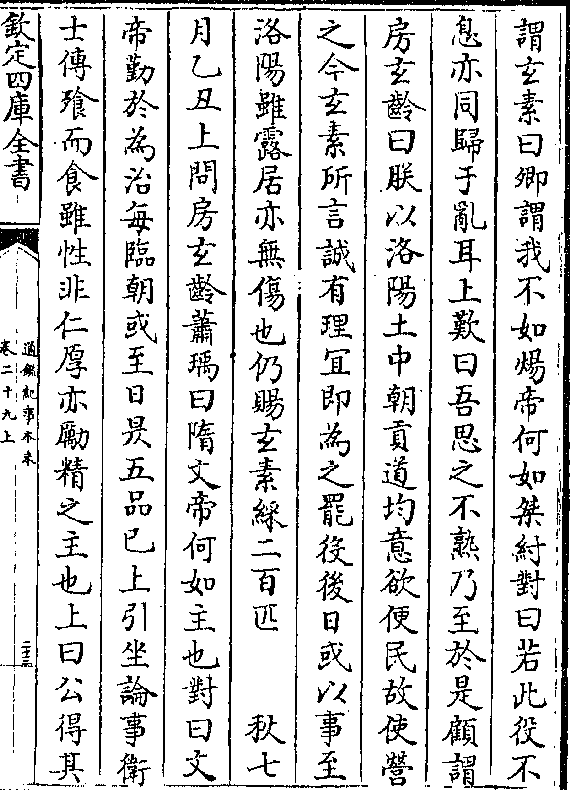 謂玄素曰卿謂我不如煬帝何如桀紂對曰若此役不
息亦同歸于亂耳上歎曰吾思之不熟乃至於是顧謂
房玄齡曰朕以洛陽土中朝貢道均意欲便民故使營
之今玄素所言誠有理宜即為之罷役後日或以事至
洛陽雖露居亦無傷也仍賜玄素綵二百匹　秋七
月乙丑上問房玄齡蕭瑀曰隋文帝何如主也對曰文
帝勤於為治每臨朝或至日昃五品已上引坐論事衛
士傳飱而食雖性非仁厚亦勵精之主也上曰公得其
欽定四庫全書
通鑑紀事本末
卷二十九上